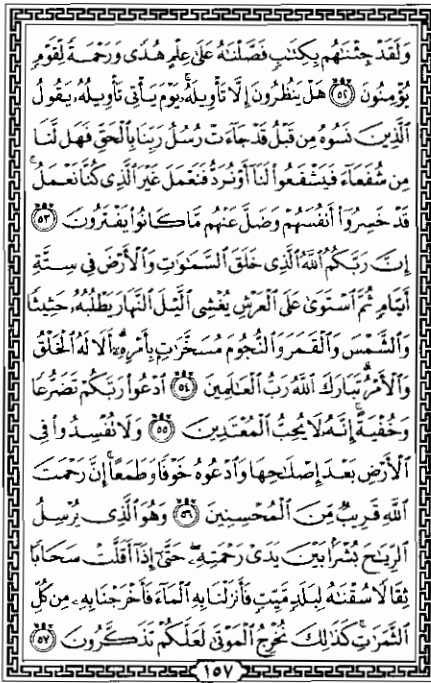 وَلَقَدْ جِئْنَٰهُم بِكِتَٰبٍ فَصَّلْنَٰهُ عَلَىٰ عِلْمٍ هُدًى وَرَحْمَةً لِّقَوْمٍ
يُؤْمِنُونَ ٥٢ هَلْ يَنظُرُونَ إِلَّا تَأْوِيلَهُۥ ۚ يَوْمَ يَأْتِى تَأْوِيلُهُۥ يَقُولُ
ٱلَّذِينَ نَسُوهُ مِن قَبْلُ قَدْ جَآءَتْ رُسُلُ رَبِّنَا بِٱلْحَقِّ فَهَل لَّنَا
مِن شُفَعَآءَ فَيَشْفَعُوا۟ لَنَآ أَوْ نُرَدُّ فَنَعْمَلَ غَيْرَ ٱلَّذِى كُنَّا نَعْمَلُ ۚ
قَدْ خَسِرُوٓا۟ أَنفُسَهُمْ وَضَلَّ عَنْهُم مَّا كَانُوا۟ يَفْتَرُونَ ٥٣
إِنَّ رَبَّكُمُ ٱللَّهُ ٱلَّذِى خَلَقَ ٱلسَّمَٰوَٰتِ وَٱلْأَرْضَ فِى سِتَّةِ
أَيَّامٍ ثُمَّ ٱسْتَوَىٰ عَلَى ٱلْعَرْشِ يُغْشِى ٱلَّيْلَ ٱلنَّهَارَ يَطْلُبُهُۥ حَثِيثًا
وَٱلشَّمْسَ وَٱلْقَمَرَ وَٱلنُّجُومَ مُسَخَّرَٰتٍۭ بِأَمْرِهِۦٓ ۗ أَلَا لَهُ ٱلْخَلْقُ
وَٱلْأَمْرُ ۗ تَبَارَكَ ٱللَّهُ رَبُّ ٱلْعَٰلَمِينَ ٥٤ ٱدْعُوا۟ رَبَّكُمْ تَضَرُّعًا
وَخُفْيَةً ۚ إِنَّهُۥ لَا يُحِبُّ ٱلْمُعْتَدِينَ ٥٥ وَلَا تُفْسِدُوا۟ فِى
ٱلْأَرْضِ بَعْدَ إِصْلَٰحِهَا وَٱدْعُوهُ خَوْفًا وَطَمَعًا ۚ إِنَّ رَحْمَتَ
ٱللَّهِ قَرِيبٌ مِّنَ ٱلْمُحْسِنِينَ ٥٦ وَهُوَ ٱلَّذِى يُرْسِلُ
ٱلرِّيَٰحَ بُشْرًۢا بَيْنَ يَدَىْ رَحْمَتِهِۦ ۖ حَتَّىٰٓ إِذَآ أَقَلَّتْ سَحَابًا
ثِقَالًا سُقْنَٰهُ لِبَلَدٍ مَّيِّتٍ فَأَنزَلْنَا بِهِ ٱلْمَآءَ فَأَخْرَجْنَا بِهِۦ مِن كُلِّ
ٱلثَّمَرَٰتِ ۚ كَذَٰلِكَ نُخْرِجُ ٱلْمَوْتَىٰ لَعَلَّكُمْ تَذَكَّرُونَ ٥٧
١٥٧